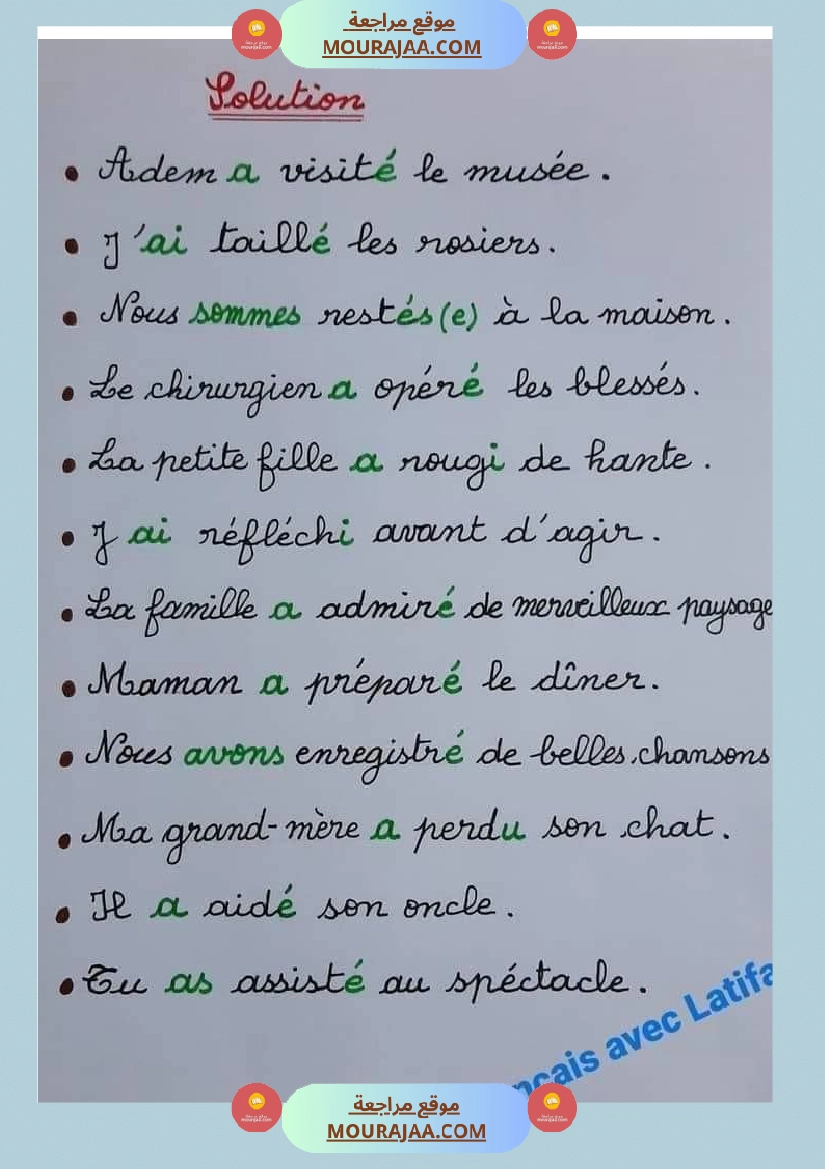 موقع مراجعة
MOURAJAA.COM
Solution
• Adem a visité le musée.
• J'ai taillé les rosiers.
• Nous sommes restés(e) à la maison.
• Le chirurgien a opéré les blessés.
• La petite fille a rougi de hante.
• J ai réfléchi avant d'agir.
• La famille a admiré de merveilleux paysage
• Maman a préparé le dîner.
• Nous avons enregistré de belles chansons
• Ma grand-mère a perdu son chat.
• Il a aidé son oncle.
• Tu as assisté au spéctacle.
ncais avec Latifa
موقع مراجعة
MOURAJAA.COM